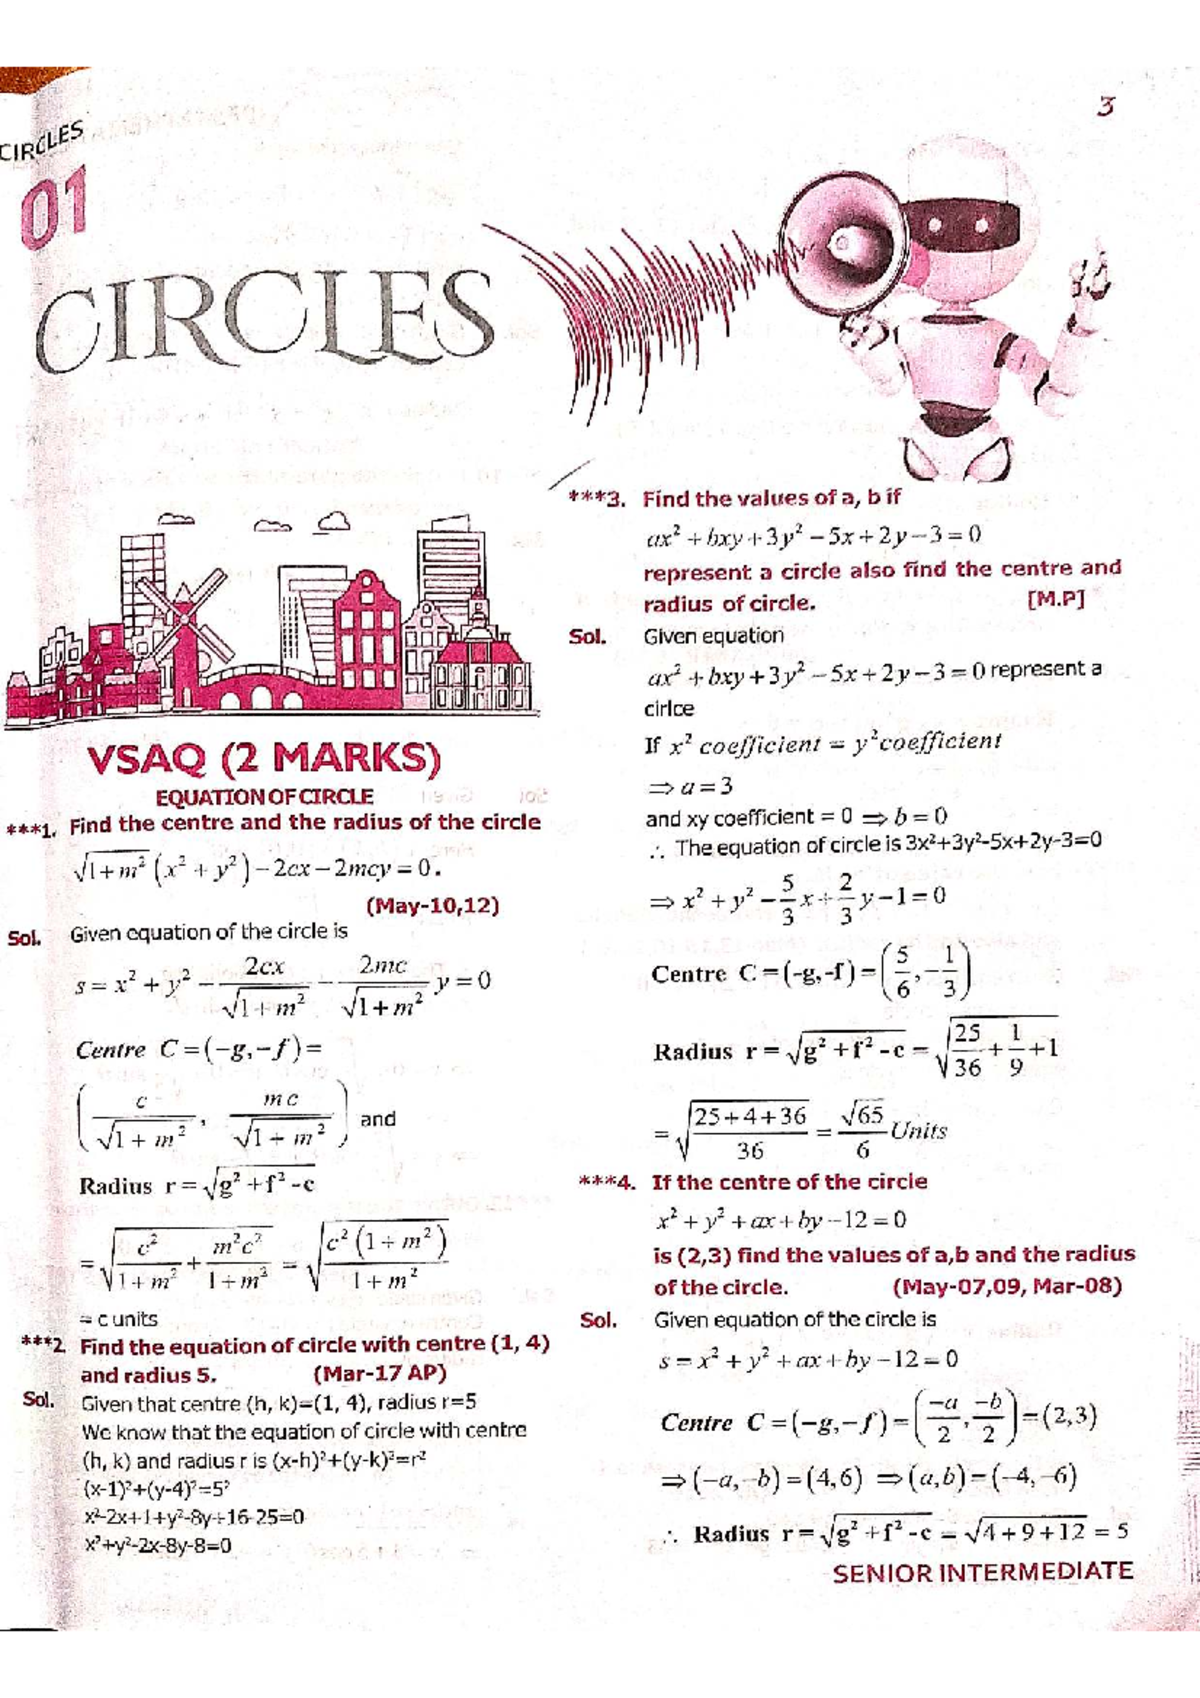 3
CIRCLES
01
CIRCLES
VSAQ (2 MARKS)
EQUATION OF CIRCLE
***1. Find the centre and the radius of the circle
√(1+m²) (x² + y²) – 2cx – 2mcy = 0.
(May-10,12)
Sol. Given equation of the circle is
s = x² + y² – 2cx/√(1+m²) – 2mc/√(1+m²) y = 0
Centre C = (–g,–f) =
(c/√(1+m²), mc/√(1+m²)) and
Radius r = √(g²+f²-c)
= √(c²/(1+m²) + m²c²/(1+m²)) = √(c²(1+m²)/(1+m²))
= c units
***2. Find the equation of circle with centre (1, 4)
and radius 5. (Mar-17 AP)
Sol. Given that centre (h, k)=(1, 4), radius r=5
We know that the equation of circle with centre
(h, k) and radius r is (x-h)²+(y-k)²=r²
(x-1)²+(y-4)²=5²
x²-2x+1+y²-8y+16-25=0
x²+y²-2x-8y-8=0
***3. Find the values of a, b if
ax² + bxy + 3y² – 5x + 2y – 3 = 0
represent a circle also find the centre and
radius of circle. [M.P]
Sol. Given equation
ax² + bxy + 3y² – 5x + 2y – 3 = 0 represent a
cirlce
If x² coefficient = y² coefficient
⇒ a = 3
and xy coefficient = 0 ⇒ b = 0
∴ The equation of circle is 3x²+3y²-5x+2y-3=0
⇒ x² + y² – 5/3 x + 2/3 y – 1 = 0
Centre C = (-g,-f) = (5/6, –1/3)
Radius r = √(g²+f²-c) = √(25/36 + 1/9 + 1)
= √((25+4+36)/36) = √65/6 Units
***4. If the centre of the circle
x² + y² + ax + by – 12 = 0
is (2,3) find the values of a,b and the radius
of the circle. (May-07,09, Mar-08)
Sol. Given equation of the circle is
s = x² + y² + ax + by – 12 = 0
Centre C = (–g,–f) = (–a/2, –b/2) = (2,3)
⇒ (–a,–b) = (4,6) ⇒ (a,b) = (–4,–6)
∴ Radius r = √(g²+f²-c) = √(4+9+12) = 5
SENIOR INTERMEDIATE